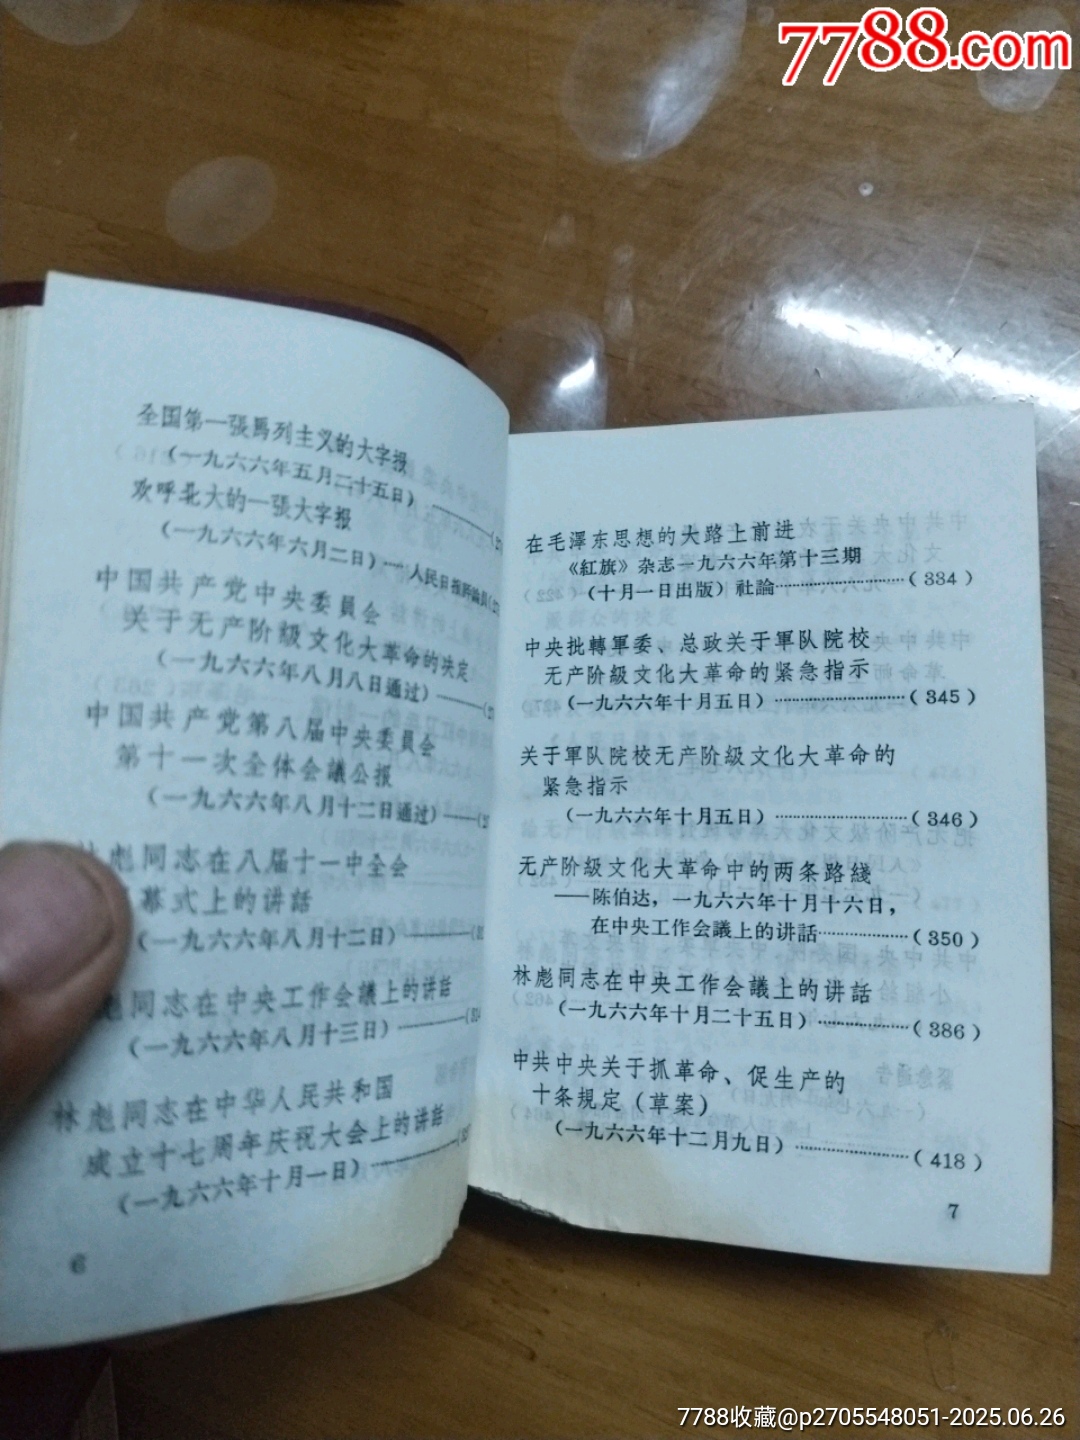 7788.com
全国第一張馬列主义的大字报
(一九六六年五月二十五日)
欢呼北大的一張大字报
(一九六六年六月二日)……人民日报評論員(2
中国共产党中央委員会
关于无产阶級文化大革命的决定
(一九六六年八月八日通过)
中国共产党第八届中央委員会
第十一次全体会議公报
(一九六六年八月十二日通过)
林彪同志在八届十一中全会
幕式上的讲話
(一九六六年八月十二日)
彪同志在中央工作会議上的讲話
(一九六六年八月十三日)
林彪同志在中华人民共和国
成立十七周年庆祝大会上的讲話
(一九六六年十月一日)
6
在毛澤东思想的大路上前进
《紅旗》杂志一九六六年第十三期
(十月一日出版) 社論……………(334)
中央批轉軍委、总政关于軍队院校
无产阶級文化大革命的紧急指示
(一九六六年十月五日)……………(345)
关于軍队院校无产阶級文化大革命的
紧急指示
(一九六六年十月五日)……………(346)
无产阶級文化大革命中的两条路綫
——陈伯达,一九六六年十月十六日,
在中央工作会議上的讲話……………(350)
林彪同志在中央工作会議上的讲話
(一九六六年十月二十五日)……………(386)
中共中央关于抓革命、促生产的
十条规定(草案)
(一九六六年十二月九日)……………(418)
7
7788收藏@p2705548051-2025.06.26